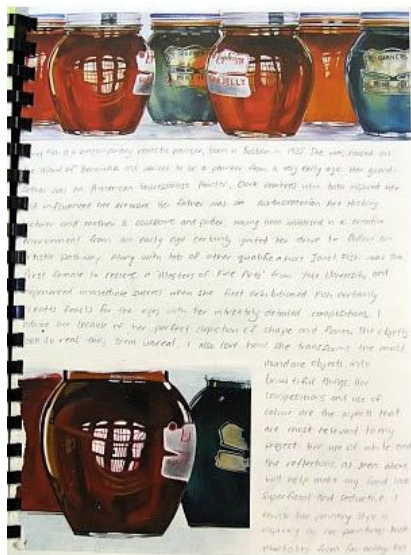 JELLY
JELLY
Fish is a contemporary realistic painter, born in Boston in 1938. She was raised on
the island of Bermuda and wanted to be a painter from a very early age. Her grand-
father was an American Impressionist Painter, Clark
and influenced her artwork. Her father was an Art History
and mother a sculptor and potter, having been immersed in a creative
environment from an early age certainly ignited her drive to follow an
artistic pathway. Along with lots of other qualifications Janet Fish was the
first female to receive a 'Masters of Fine Arts' from Yale University and
experienced immediate success when she first exhibitioned. Fish certainly
creates feasts for the eyes with her intricately detailed compositions. I
admire her because of her perfect depiction of shape and form. The objects
so real they seem unreal. I also love how she transforms the most
mundane objects into
beautiful things. Her
compositions and use of
colour are the aspects that
are most relevant to my
project. Her use of white and
the reflections as seen above
will help make my food look
superficial and seductive. I
her painting style is
as her paintings look
from far away but